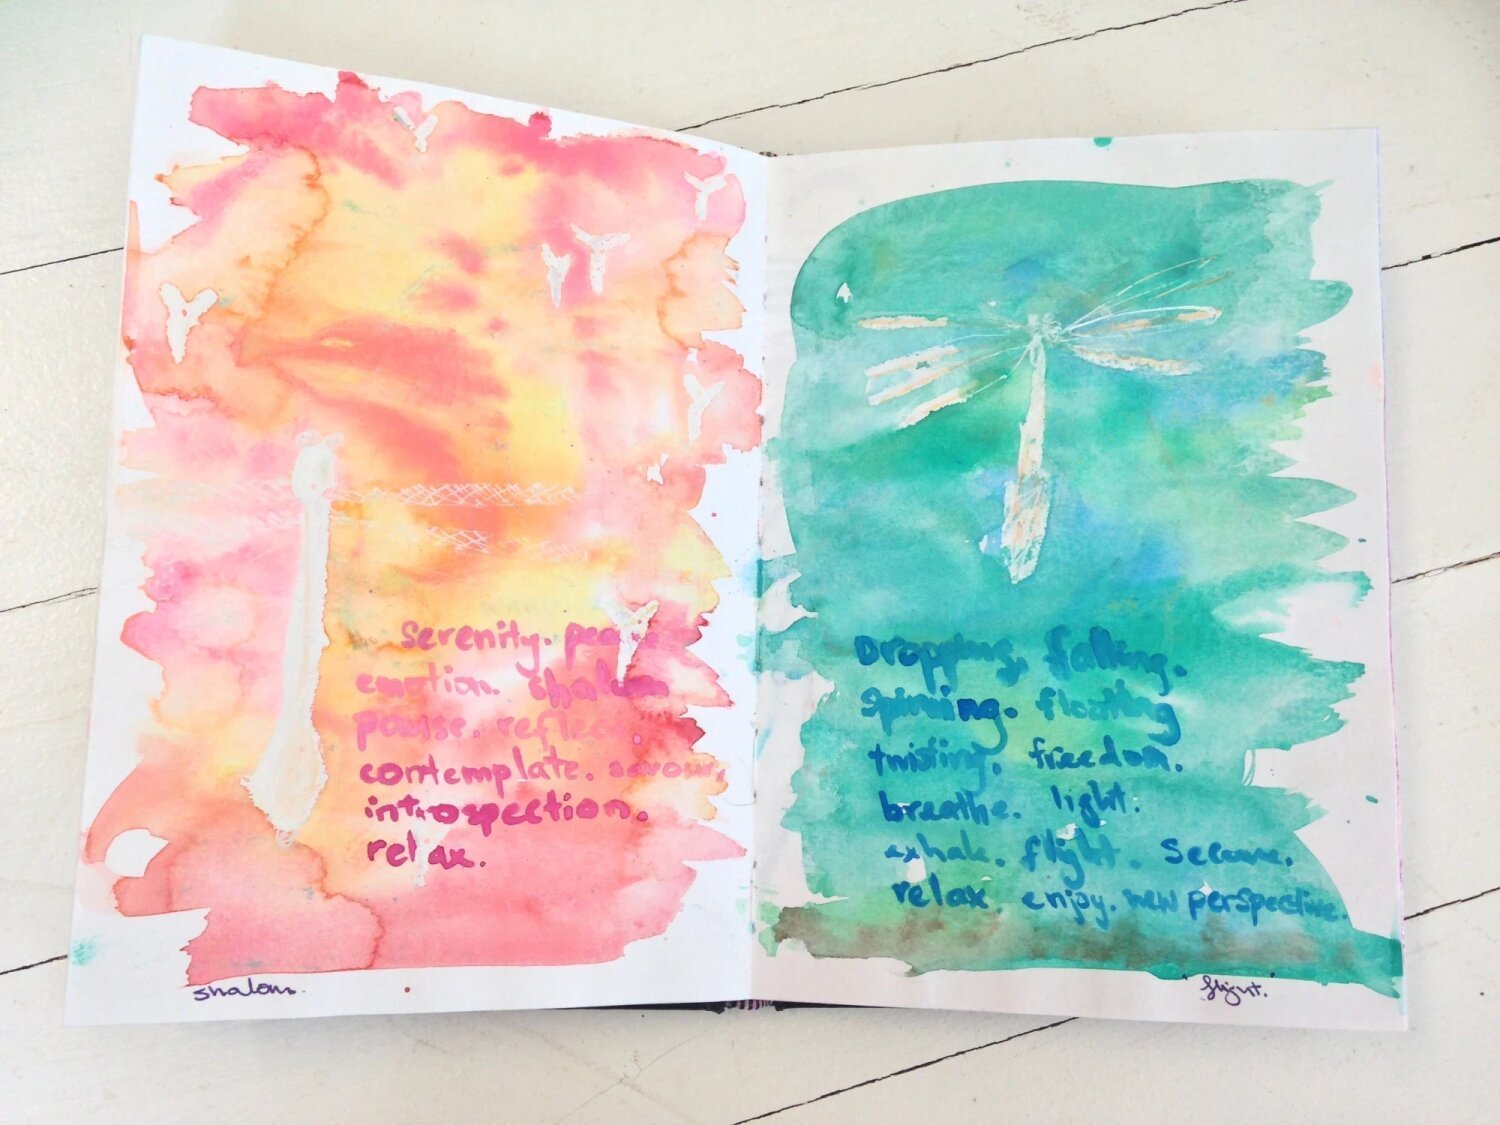 Serenity. peace.
emotion. shalom
pause. reflect.
contemplate. savour,
introspection.
relax.
shalom.
Dropping, falling.
spinning. floating
twisting. freedom.
breathe. light.
exhale. flight. Secure.
relax. enjoy. new perspective.
'flight.'